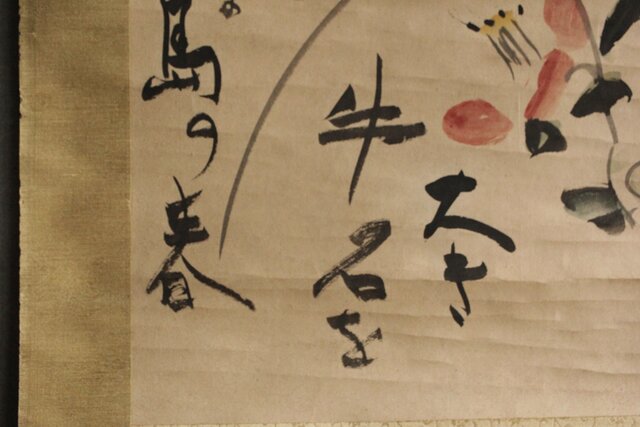 大き
牛名を
島の春